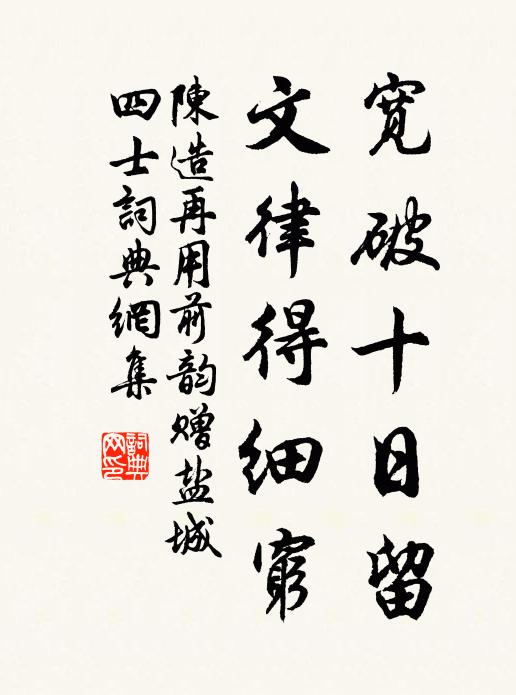 寬破十日留
文律得細窮
陳造再用前韵赠盐城
四士詞典網集
詞典网印